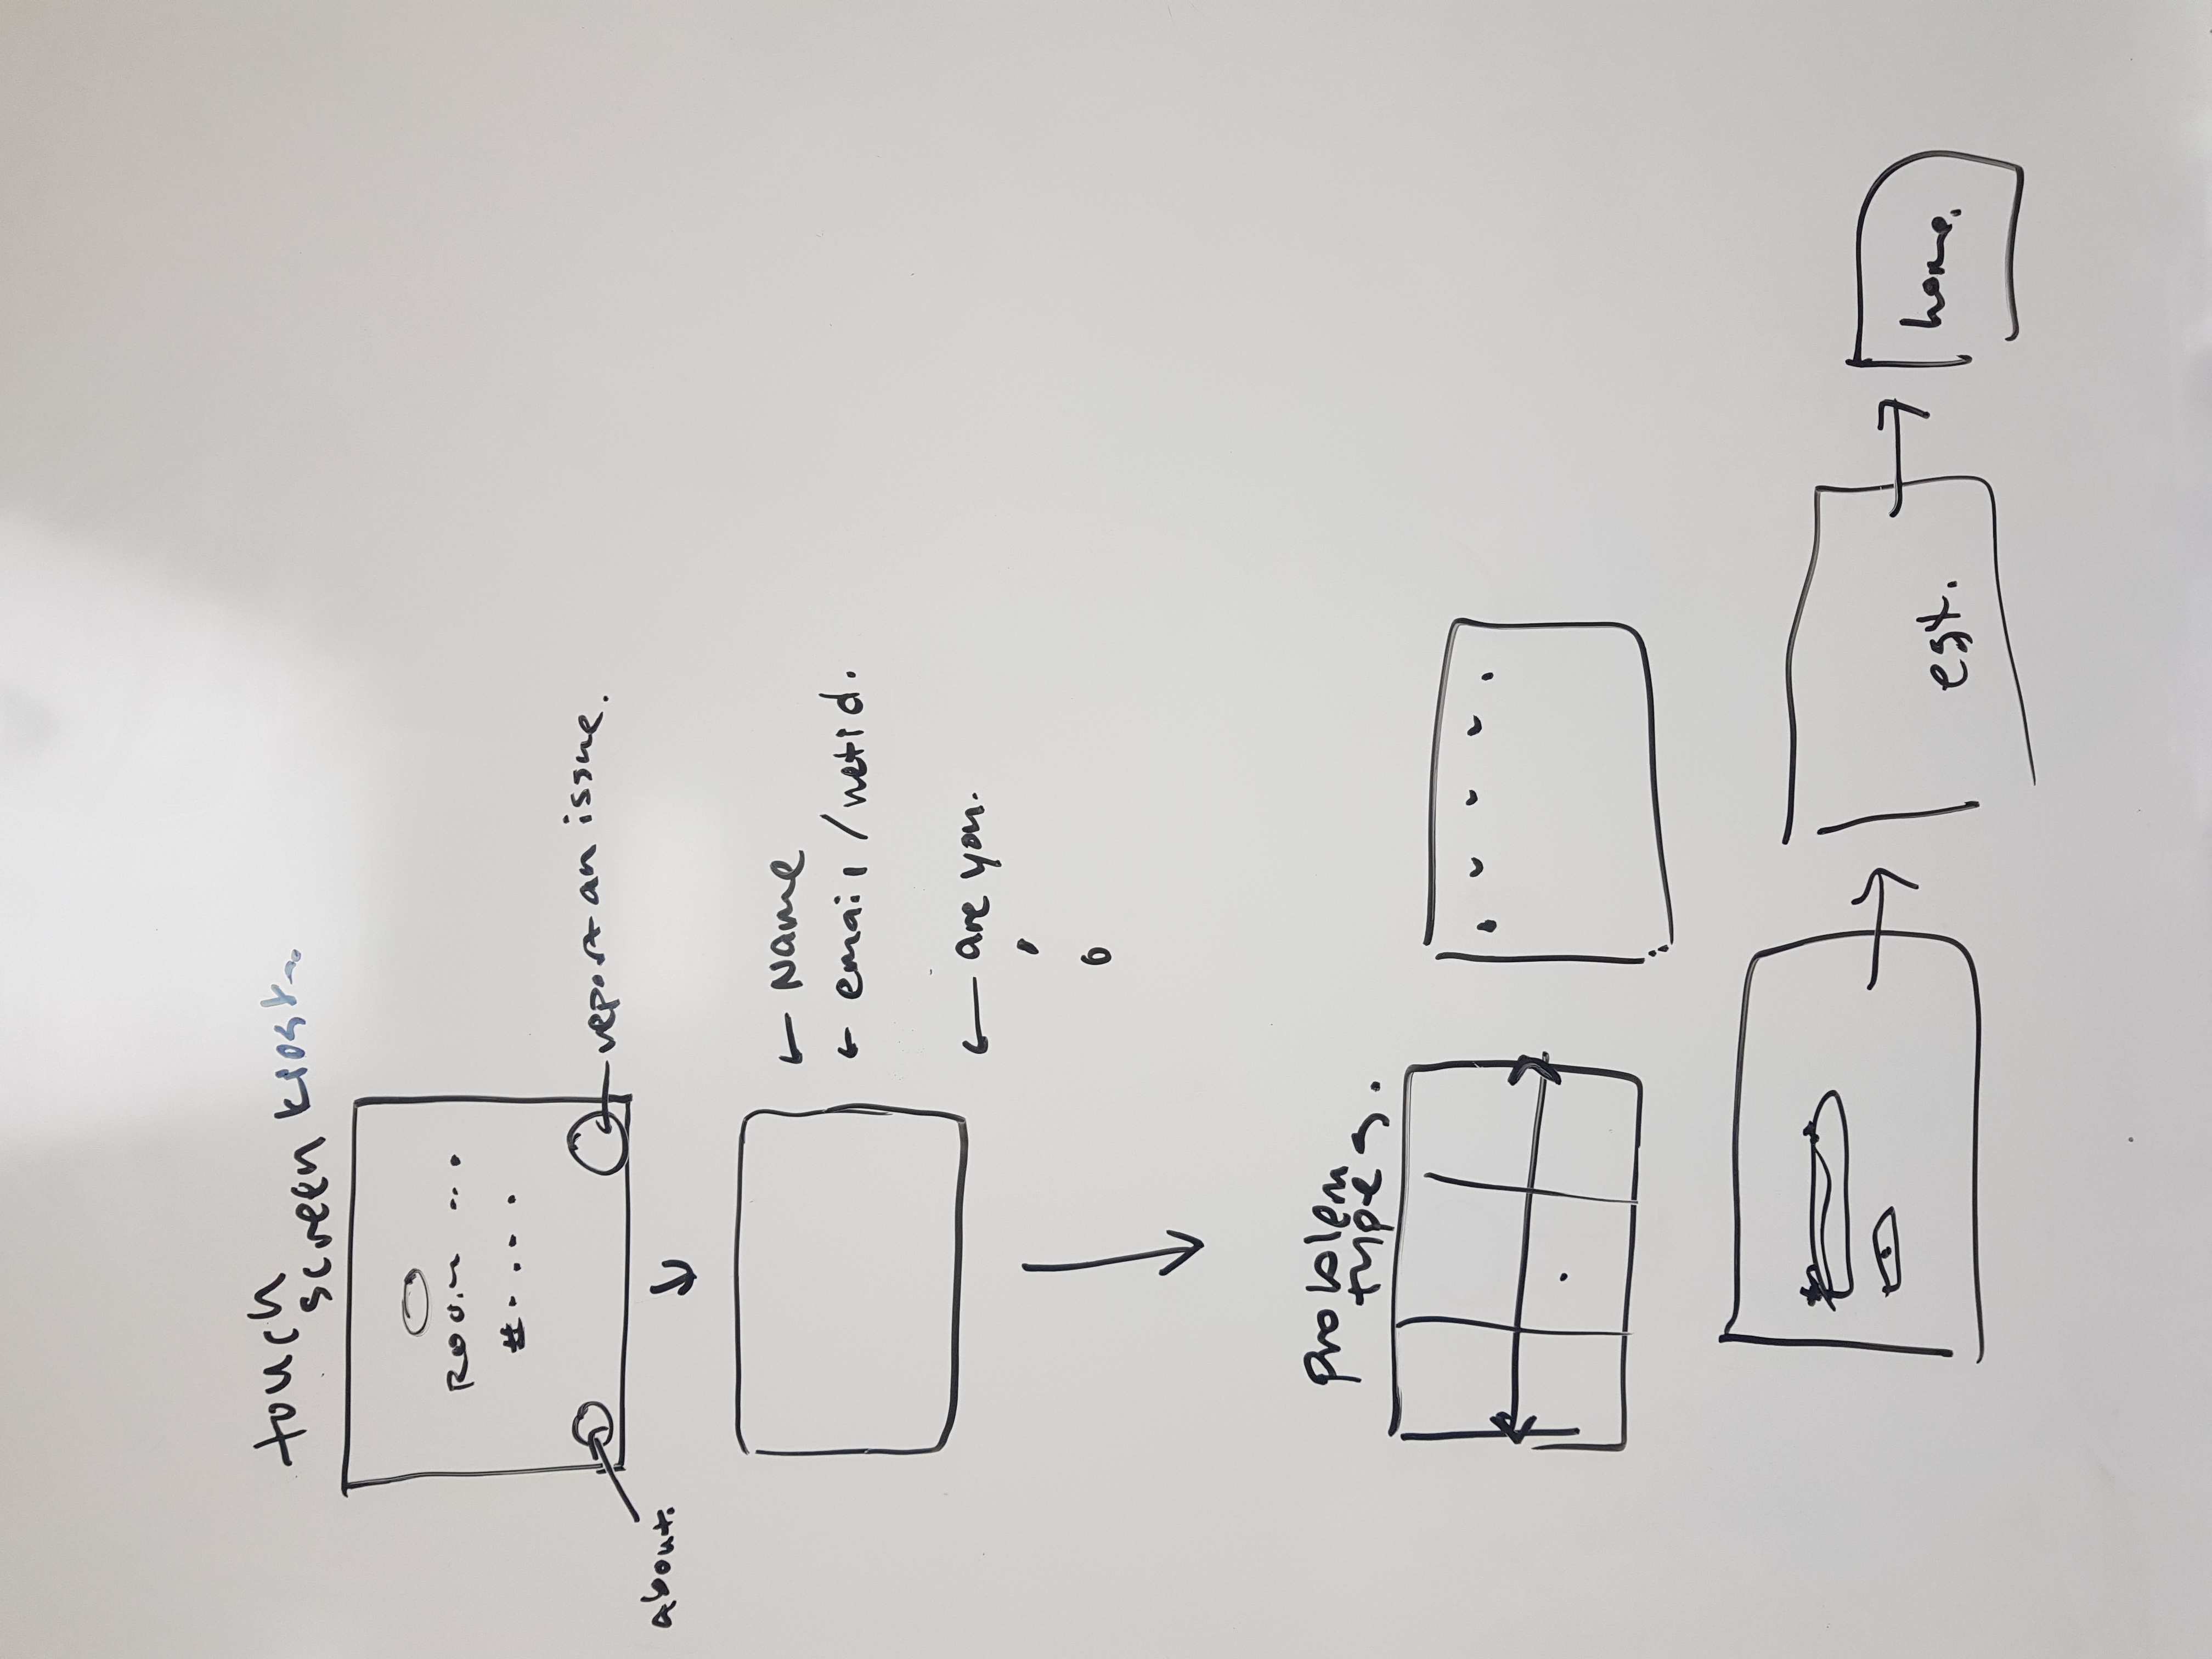 touch
screen kiosk
Room ...
# ....
report an issue.
about.
Name
email/netid.
are you.
problem
types.
est.
home.